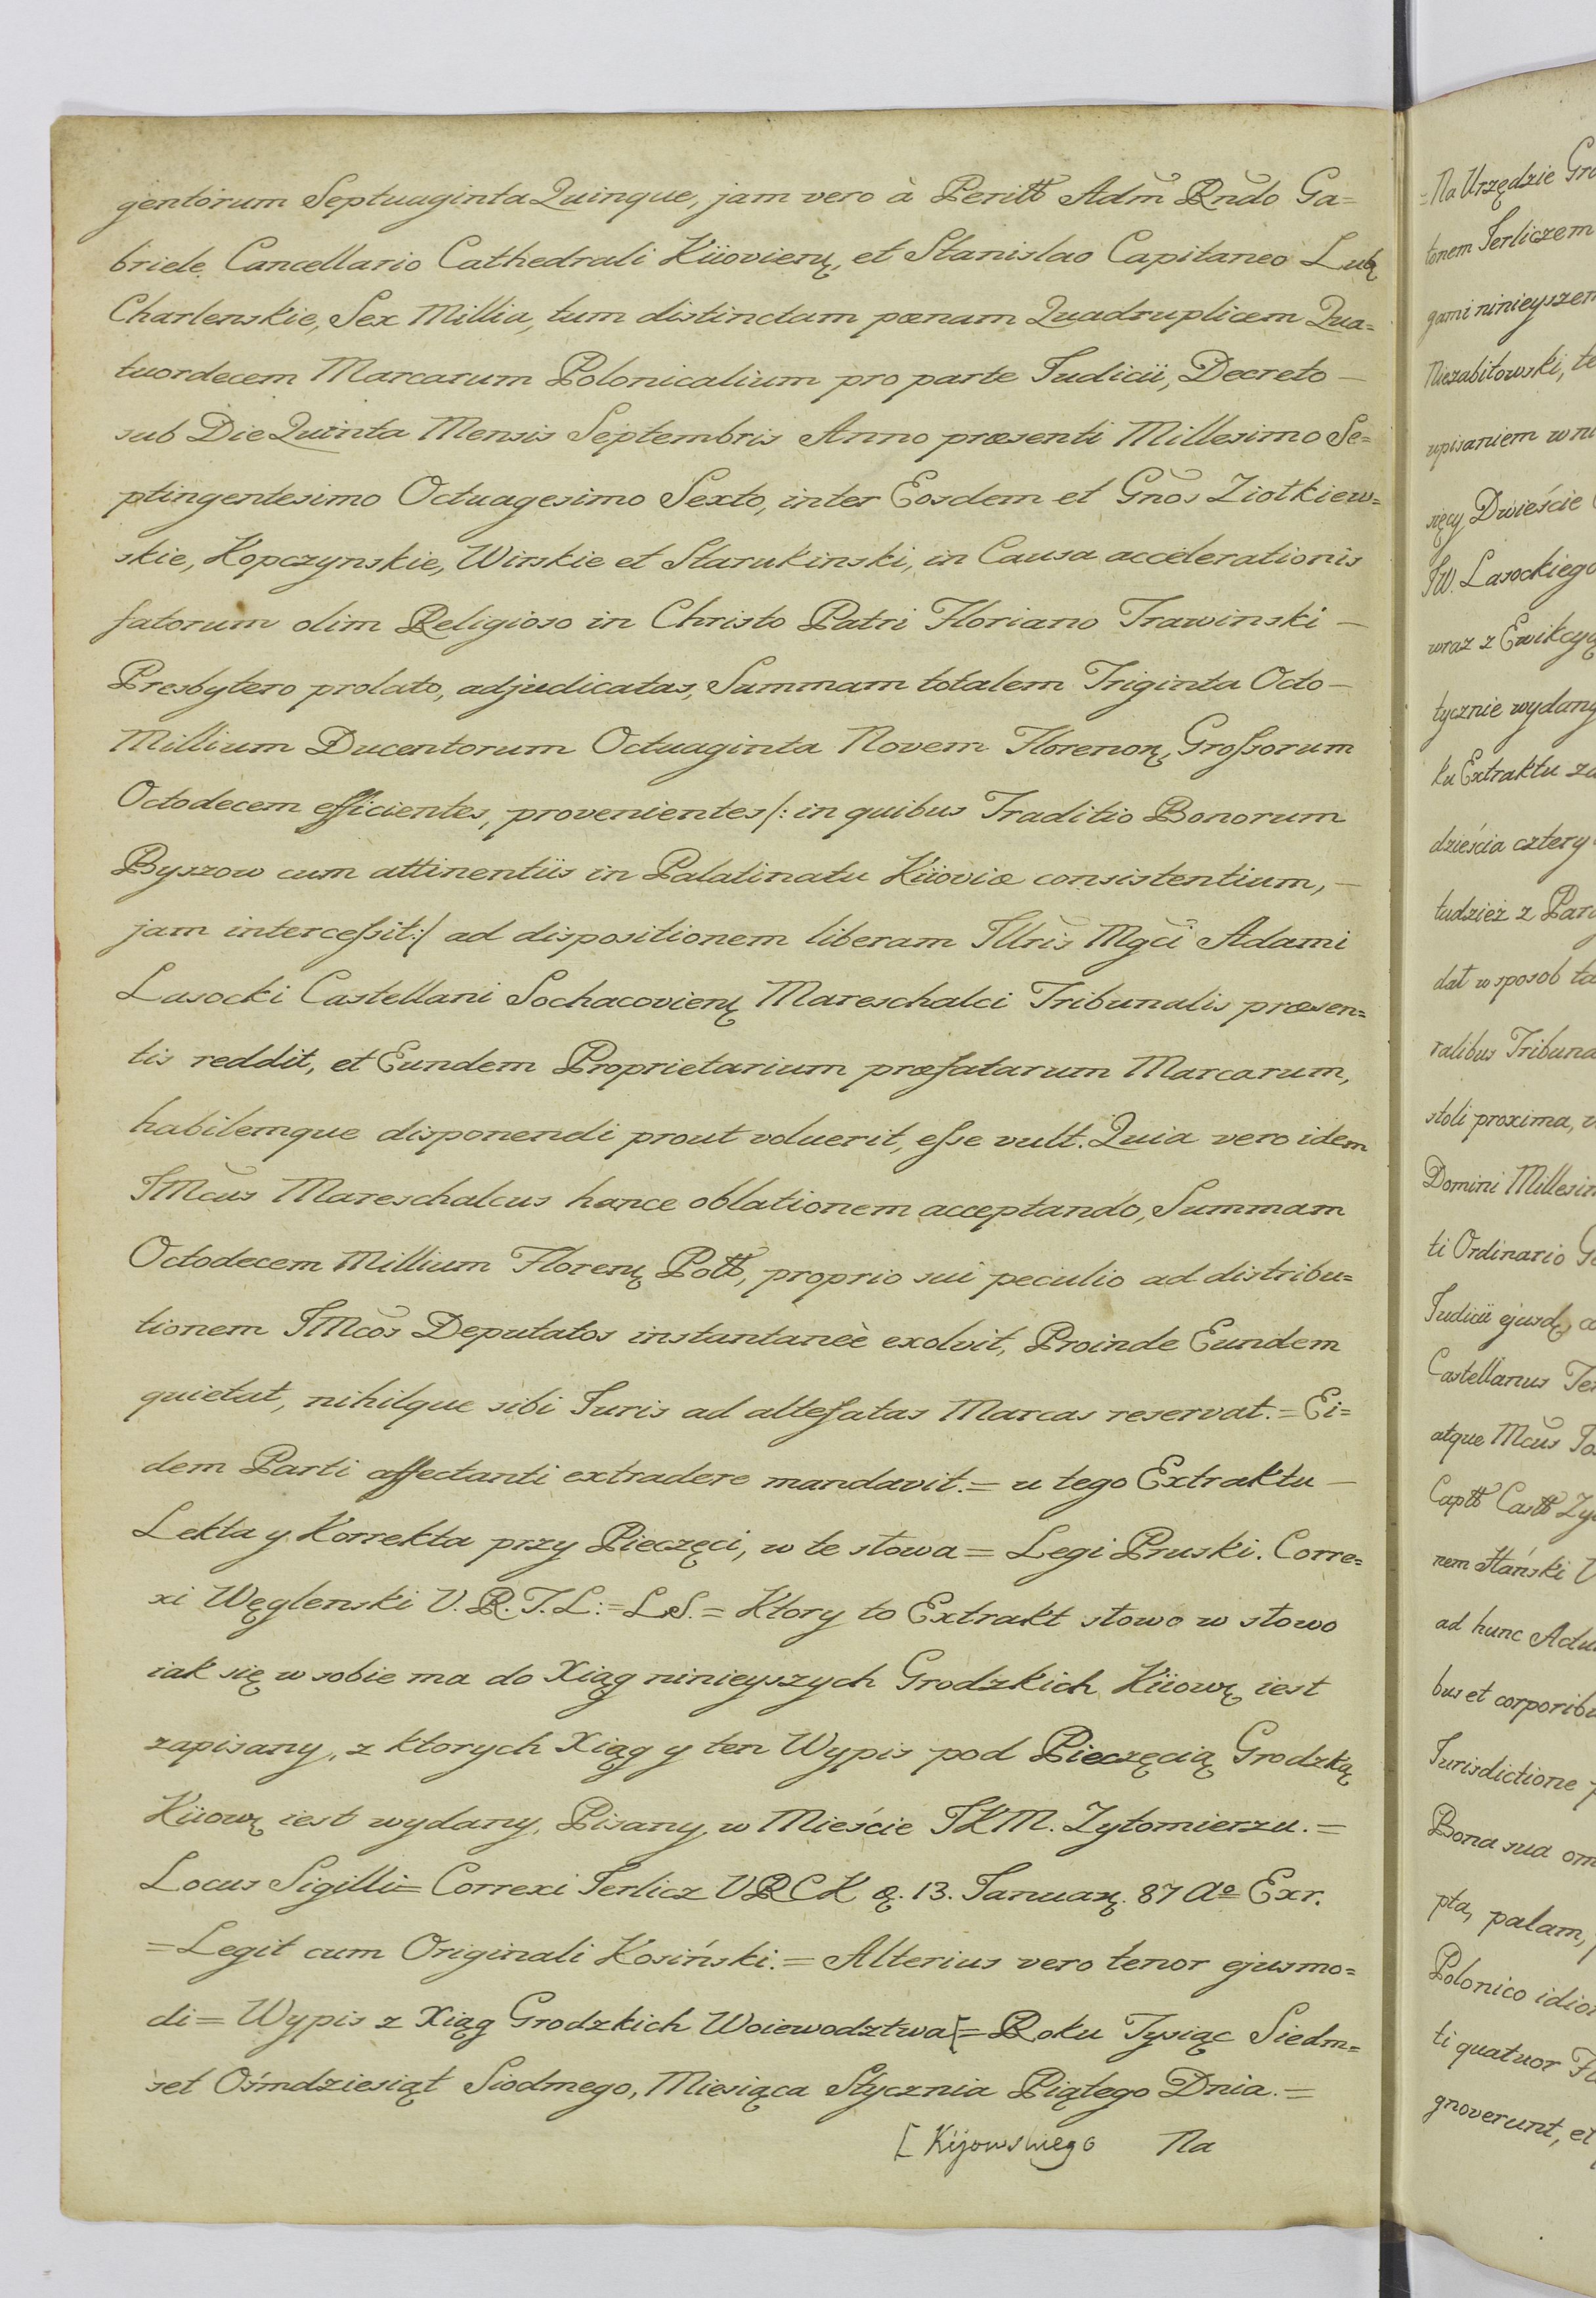 gentorum Septuaginta Quinque, jam vero à Peritt Adm̃ Rñdo Ga=
briele Cancellario Cathedrali Kiiovienę, et Stanislao Capitaneo Lubę
Charlenskie, Sex Millia, tum distinctam pœnam Quadruplicem Qua=
tuordecem Marcarum Polonicalium pro parte Judicii, Decreto —
sub Die Quinta Mensis Septembris Anno præsenti Millesimo Se=
ptingentesimo Octuagesimo Sexto, inter Eosdem et Gños Ziołkiew=
skie, Kopczynskie, Wirskie et Starukinski, in Causa accelerationis
fatorum olim Religioso in Christo Patri Floriano Trawinski —
Presbytero prolato, adjudicatas, Summam totalem Triginta Octo —
Millium Ducentorum Octuaginta Novem Florenorę, Grossorum
Octodecem efficientes, provenientes /: in quibus Traditio Bonorum
Byszow cum attinentiis in Palatinatu Kiioviæ consistentium, —
jam intercessit :/ ad dispositionem liberam Illris̃ Mgci̇̃ Adami
Lasocki Castellani Sochacovienę Mareschalci Tribunalis præsen=
tis reddit, et Eundem Proprietarium præfatarum Marcarum,
habilemque disponendi prout voluerit, esse vult. Quia vero idem
JMcus̃ Mareschalcus hance oblationem acceptando, Summam
Octodecem Millium Florenę Poltt, proprio sui peculio ad distribu=
tionem JMcos̃ Deputatos instantaneè exolvit, Proinde Eundem
quietat, nihilque sibi Juris ad altefatas Marcas reservat. = Ei=
dem Parti affectanti extradere mandavit. = u tego Extraktu —
Lekta y Korrekta przy Pieczęci, w te słowa = Legi Pruski. Corre=
xi Węglenski V. R. T. L: = L.S. = Ktory to Extrakt słowo w słowo
iak się w sobie ma do Xiąg ninieyszych Grodzkich Kiiowę iest
zapisany, z ktorych Xiąg y ten Wypis pod Pieczęcią Grodzką
Kiiowę iest wydany, Pisany w Mieście JKM. Zytomierzu. =
Locus Sigilli = Correxi Terlicz VRCK ę. 13. Januarę. 87 Aº Exr.
= Legit cum Originali Kosiński. = Alterius vero tenor ejusmo=
di = Wypis z Xiąg Grodzkich Woiewodztwa [ = Roku Tysiąc Siedm=
set Ośmdziesiąt Siodmego, Miesiąca Stycznia Piątego Dnia. =
[ Kijowskiego Na
= Na Urzędzie Gro
tonem Terliczem
gami ninieyszem
Niezabitowski, te
upisaniem w ni
sięcy Dwieście
JW. Lasockiego
wraz z Ewikcyą
tycznie wydany
ku Extraktu za
dzieścia cztery
tudzież z Par
dał w sposob ta
ralibus Tribuna
stoli proxima, v
Domini Millesim
ti Ordinario Ge
Judicii ejusdę, co
Castellanus Te
atque Mcus̃ Jo
Captt Castt Zy
nem Hański V
ad hunc Actu
bus et corporibu
Jurisdictione p
Bona sua om
pta, palam,
Polonico idio
ti quatuor Fl
gnoverunt, et